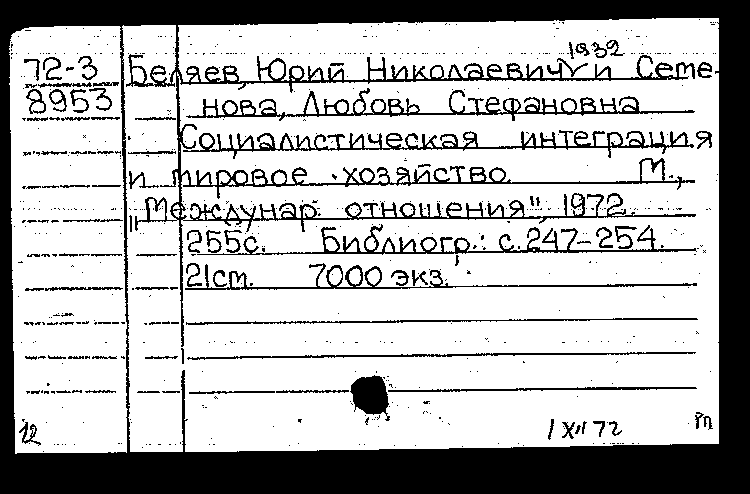 1932
72-3 Беляев, Юрий Николаевич и Семе-
8953 нова, Любовь Стефановна
Социалистическая интеграция
и мировое хозяйство М.,
„Междунар. отношения", 1972.
255с. Библиогр.: с.247-254.
21см. 7000 экз.
12 1 XII 72